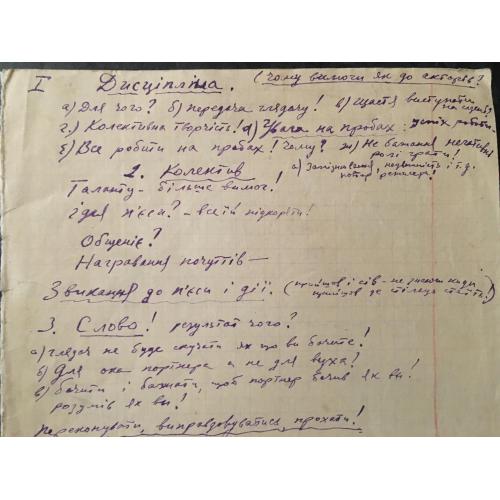 I Дисципліна. (Чому вимоги як до акторів?
а) Для чого? б) передача глядачу! в) Щастя виступати на сцені?
г) Колективна творчість! д) Увага на пробах: успіх роботи.
е) Все робити на пробах! Чому? ж) Не бажання негативні ролі грати!
2. Колектив а) Запізнення, недбалість і т.д.
Таланту – більше вимог!
Ідея п'єси? – всеїй підкоряти!
Общеніє?
Награвання почуттів –
Звикання до п'єси і дії. (прийшов і сів – не знаючи куди
3. Слово! результат чого?
а) глядач не буде скучати як що ви бачите!
б) Для ока партнера а не для вуха?
в) бачити і бажати, щоб партнер бачив як ви!
розумів як ви!
Переконувати, виправдовуватись, прохати!